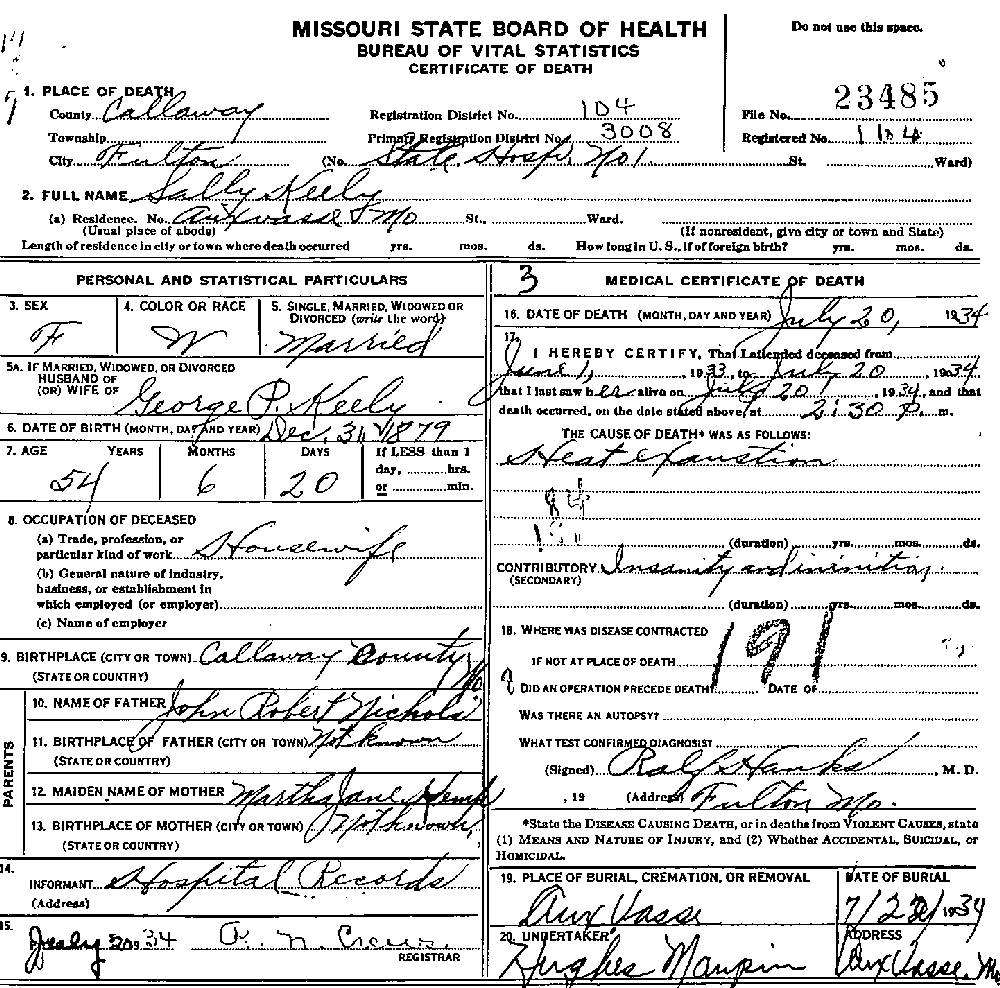 MISSOURI STATE BOARD OF HEALTH
BUREAU OF VITAL STATISTICS
CERTIFICATE OF DEATH
Do not use this space.
1. PLACE OF DEATH
County Callaway Registration District No. 104 File No. 23485
Township Primary Registration District No. 3008 Registered No. 184
City Fulton (No. State Hosp. No 1 St. Ward)
2. FULL NAME Sally Keely
(a) Residence. No. Auxvasse Mo St., Ward.
(Usual place of abode) (If nonresident, give city or town and State)
Length of residence in city or town where death occurred yrs. mos. ds. How long in U. S., if of foreign birth? yrs. mos. ds.
PERSONAL AND STATISTICAL PARTICULARS
3. SEX 4. COLOR OR RACE 5. SINGLE, MARRIED, WIDOWED OR
DIVORCED (write the word)
F W Married
5A. IF MARRIED, WIDOWED, OR DIVORCED
HUSBAND OF
(OR) WIFE OF George P. Keely
6. DATE OF BIRTH (MONTH, DAY AND YEAR) Dec. 31, 1879
7. AGE YEARS MONTHS DAYS If LESS than 1
day, hrs.
or min.
54 6 20
8. OCCUPATION OF DECEASED
(a) Trade, profession, or
particular kind of work Housewife
(b) General nature of industry,
business, or establishment in
which employed (or employer)
(c) Name of employer
9. BIRTHPLACE (CITY OR TOWN) Callaway County Mo
(STATE OR COUNTRY)
PARENTS
10. NAME OF FATHER John Robert Nichols
11. BIRTHPLACE OF FATHER (CITY OR TOWN) Not known
(STATE OR COUNTRY)
12. MAIDEN NAME OF MOTHER Martha Jane
13. BIRTHPLACE OF MOTHER (CITY OR TOWN) Not known
(STATE OR COUNTRY)
14.
INFORMANT Hospital Records
(Address)
15.
July 20 1934 R. N. Crews
REGISTRAR
3 MEDICAL CERTIFICATE OF DEATH
16. DATE OF DEATH (MONTH, DAY AND YEAR) July 20, 1934
17.
I HEREBY CERTIFY, That I attended deceased from
June 1, 1933, to July 20 1934
that I last saw her alive on July 20, 1934, and that
death occurred, on the date stated above, at 2:30 P. m.
THE CAUSE OF DEATH* WAS AS FOLLOWS:
Heat exaustion
84
(duration) yrs. mos. ds.
CONTRIBUTORY Insanity and inanition
(SECONDARY)
(duration) yrs. mos. ds.
18. WHERE WAS DISEASE CONTRACTED
191
IF NOT AT PLACE OF DEATH
DID AN OPERATION PRECEDE DEATH? DATE OF
WAS THERE AN AUTOPSY?
WHAT TEST CONFIRMED DIAGNOSIS?
(Signed) Ralf Hanks, M. D.
, 19 (Address) Fulton Mo.
*State the DISEASE CAUSING DEATH, or in deaths from VIOLENT CAUSES, state
(1) MEANS AND NATURE OF INJURY, and (2) Whether ACCIDENTAL, SUICIDAL, or
HOMICIDAL.
19. PLACE OF BURIAL, CREMATION, OR REMOVAL DATE OF BURIAL
Aux Vasse 7/22/1934
20. UNDERTAKER ADDRESS
Hughes Maupin Aux Vasse, Mo